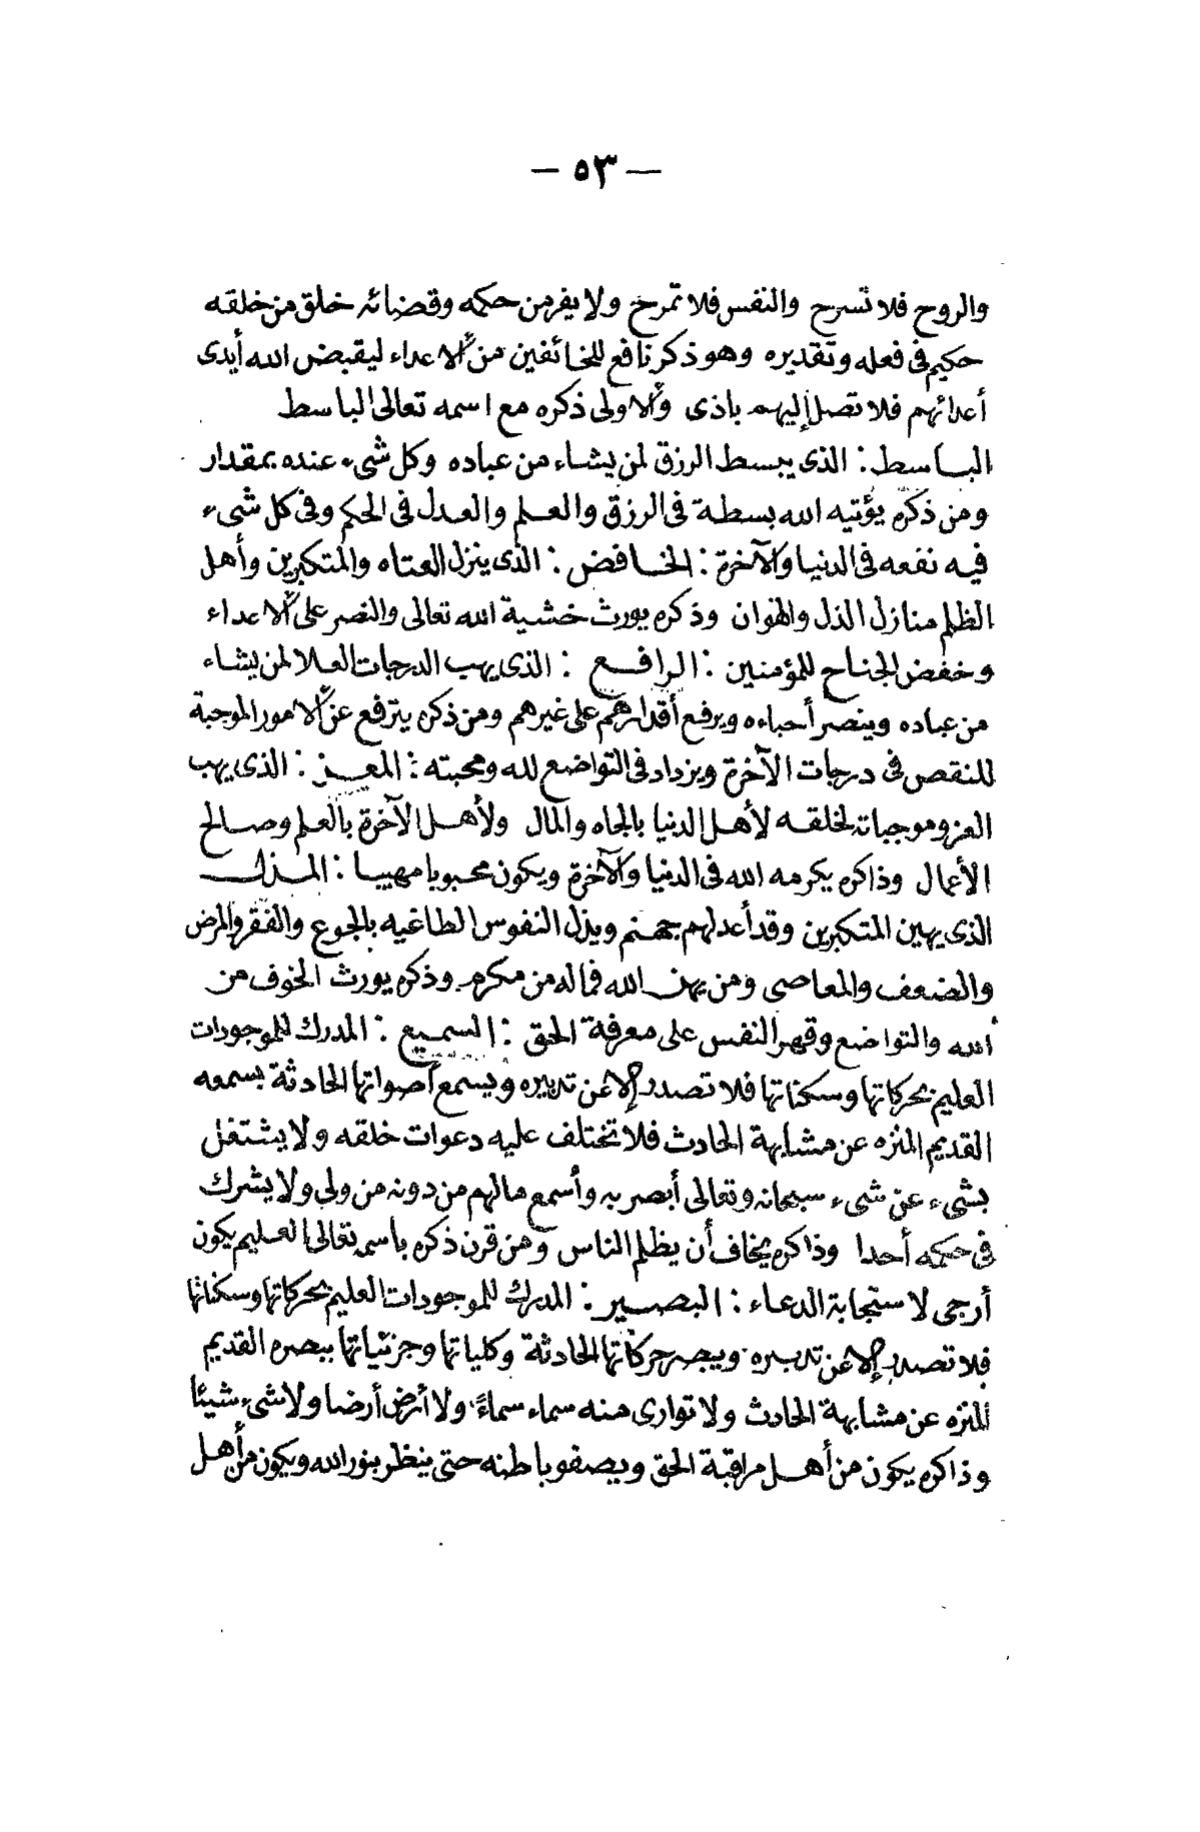 — ٥٣ —
والروح فلا تسرح والنفس فلا تمرح ولا يفر من حكمه وقضائه خلق من خلقه
حكيم فى فعله وتقديره وهو ذكر نافع للخائفين من الأعداء ليقبض الله أيدى
أعدائهم فلا تصل إليهم باذى والأولى ذكره مع اسمه تعالى الباسط
الباسط : الذى يبسط الرزق لمن يشاء من عباده وكل شىء عنده بمقدار
ومن ذكره يؤتيه الله بسطة فى الرزق والعلم والعدل فى الحكم وفى كل شىء
فيه نفعه فى الدنيا والآخرة : الخافض : الذى ينزل العتاه والمتكبرين وأهل
الظلم منازل الذل والهوان وذكره يورث خشية الله تعالى والنصر على الأعداء
وخفض الجناح للمؤمنين : الرافع : الذى يهب الدرجات العلا لمن يشاء
من عباده وينصر أحباءه ويرفع أقدارهم على غيرهم ومن ذكره يترفع عن الأمور الموجبة
للنقص فى درجات الآخرة ويزداد فى التواضع لله ومحبته : المعز : الذى يهب
العز وموجباته لخلقه لأهل الدنيا بالجاه والمال ولأهل الآخرة بالعلم وصالح
الأعمال وذاكره يكرمه الله فى الدنيا والآخرة ويكون محبوبا مهيبا : المذل
الذى يهين المتكبرين وقد أعد لهم جهنم ويذل النفوس الطاغيه بالجوع والفقر والمرض
والضعف والمعاصى ومن يهن الله فماله من مكرم وذكره يورث الخوف من
الله والتواضع وقهر النفس على معرفة الحق : السميع : المدرك للموجودات
العليم بحركاتها وسكناتها فلا تصدر إلا عن تدبيره ويسمع أصواتها الحادثة بسمعه
القديم المنزه عن مشابهة الحادث فلا تختلف عليه دعوات خلقه ولا يشتغل
بشىء عن شىء سبحانه وتعالى أبصر به وأسمع مالهم من دونه من ولى ولا يشرك
فى حكمه أحدا وذاكره يخاف أن يظلم الناس ومن قرن ذكره باسمه تعالى العليم يكون
أرجى لاستجابة الدعاء : البصير : المدرك للموجودات العليم بحركاتها وسكناتها
فلا تصدر إلا عن تدبيره ويبصر حركاتها الحادثة وكلياتها وجزئياتها ببصره القديم
المنزه عن مشابهة الحادث ولا توارى منه سماء سماءً ولا أرض أرضا ولا شىء شيئا
وذاكره يكون من أهل مراقبة الحق ويصفو باطنه حتى ينظر بنور الله ويكون من أهل